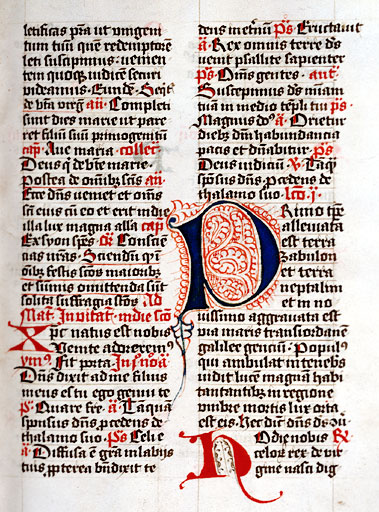 letificas pñta ut unigeni
tum tuū quem redemptorē
leti suscipimus: uenien
tem quoqz iudicē securi
uideamus. Eundē. Seqt̄
de btā virgē añ. Completi
sunt dies marie ut pare
ret filiū suū primogenitū
cap̄. Aue maria. collect̄
Deus q̇ de bte marie.
Postea de omībz scīs añ.
Ecce dñs ueniet et oms̄
scī eius cū eo et erit in die
illa lux magna alla cap̄
Ex syon spēs. ōr. Conscien
cias nr̄as.
oībz festis scōs maioribz
et summis omittenda sūt
solita suffragia scōs. Ad
Mat̄. Inuitat̄. in die scō
Xpc natus est nobis
Venite adoremus.
ymꝰ. Fit porta. In .i. no. a
Dñs dixit ad me filius
meus es tu ego genui te
p̄. Quare fre. a. Tāqua
sponsus dñs pcedens de
thalamo suo. ps̄. Celi e
a. Diffusa ē gra in labiis
tuis ppterea bn̄dixit te
deus in etnū. ps̄. Eructauit
a. Rex omnis terre ds̄
uenit psallite sapienter
ps̄. Oms̄ gentes. ant̄.
Suscepimus ds̄ miam
tuā in medio tēpli tui ps̄.
Magnus dōs. a. Orietur
dieb dni habundancia
pacis et dn̄abitur. ps̄.
Deus iudiciū. v. Taq̄
sposus dn̄s. pcedens de
thalamo suo. lc̄o. i.
Primo tp̄e
alleuiata
est terra
zabulon
et terra
neptalim
et in no
uissimo aggrauata est
uia maris trans iordanē
galilee genciū. Populꝰ
qui ambulat in tenebs
uidit lucē magnā habi
tantibus in regione
vmbre mortis lux orta
est eis. Hec dic̄ dn̄s ds̄.
Hodie nobis R̄
celor rex de vir
gine nasci dig